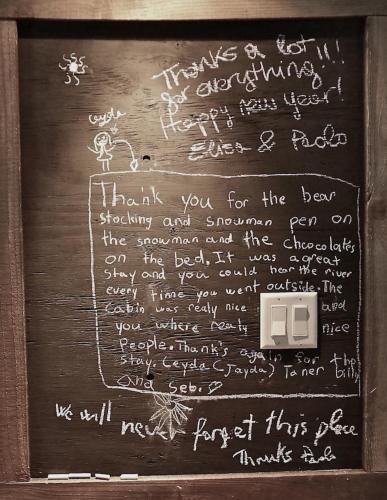 Thanks a lot!!!
for everything!
Happy new year!
Elisa & Paolo
Leyda
Thank you for the bear
stocking and snowman pen on
the snowman and the chocolates
on the bed. It was a great
stay and you could hear the river
every time you went outside. The
cabin was realy nice and
you where realy nice
People. Thank's again for the
stay. Leyda (Jayda) Taner billy
and Seb.
We will never forget this place
Thanks Paolo